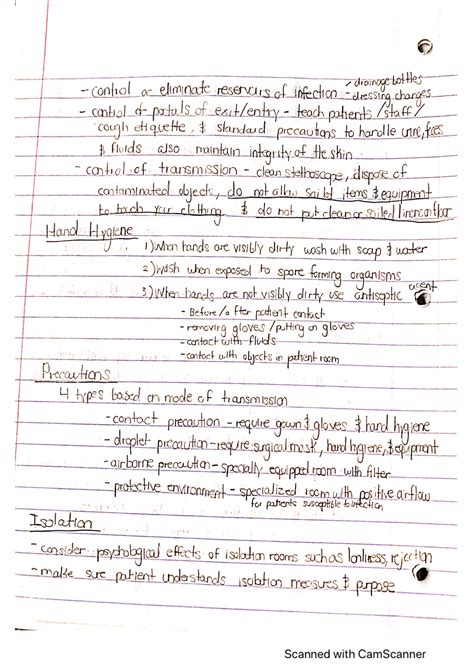 - control or eliminate reservoirs of infection - drainage bottles
- dressing changes
- control of portals of exit/entry - teach patients/staff/
cough etiquette, & standard precautions to handle urine, feces
& fluids also maintain integrity of the skin
- control of transmission - clean stethoscope, dispose of
contaminated objects, do not allow soiled items & equipment
to touch your clothing & do not put clean or soiled linen on floor
Hand Hygiene
1) When hands are visibly dirty wash with soap & water
2) wash when exposed to spore forming organisms
3) When hands are not visibly dirty use antiseptic agent
- Before/after patient contact
- removing gloves/putting on gloves
- contact with fluids
- contact with objects in patient room
Precautions
4 types based on mode of transmission
- contact precaution - require gown & gloves & hand hygiene
- droplet precaution - require surgical mask, hand hygiene, & equipment
- airborne precaution - specially equipped room with filter
- protective environment - specialized room with positive airflow
for patients susceptible to infection
Isolation
- consider psychological effects of isolation rooms such as lonliness, rejection
- make sure patient understands isolation measures & purpose
Scanned with CamScanner